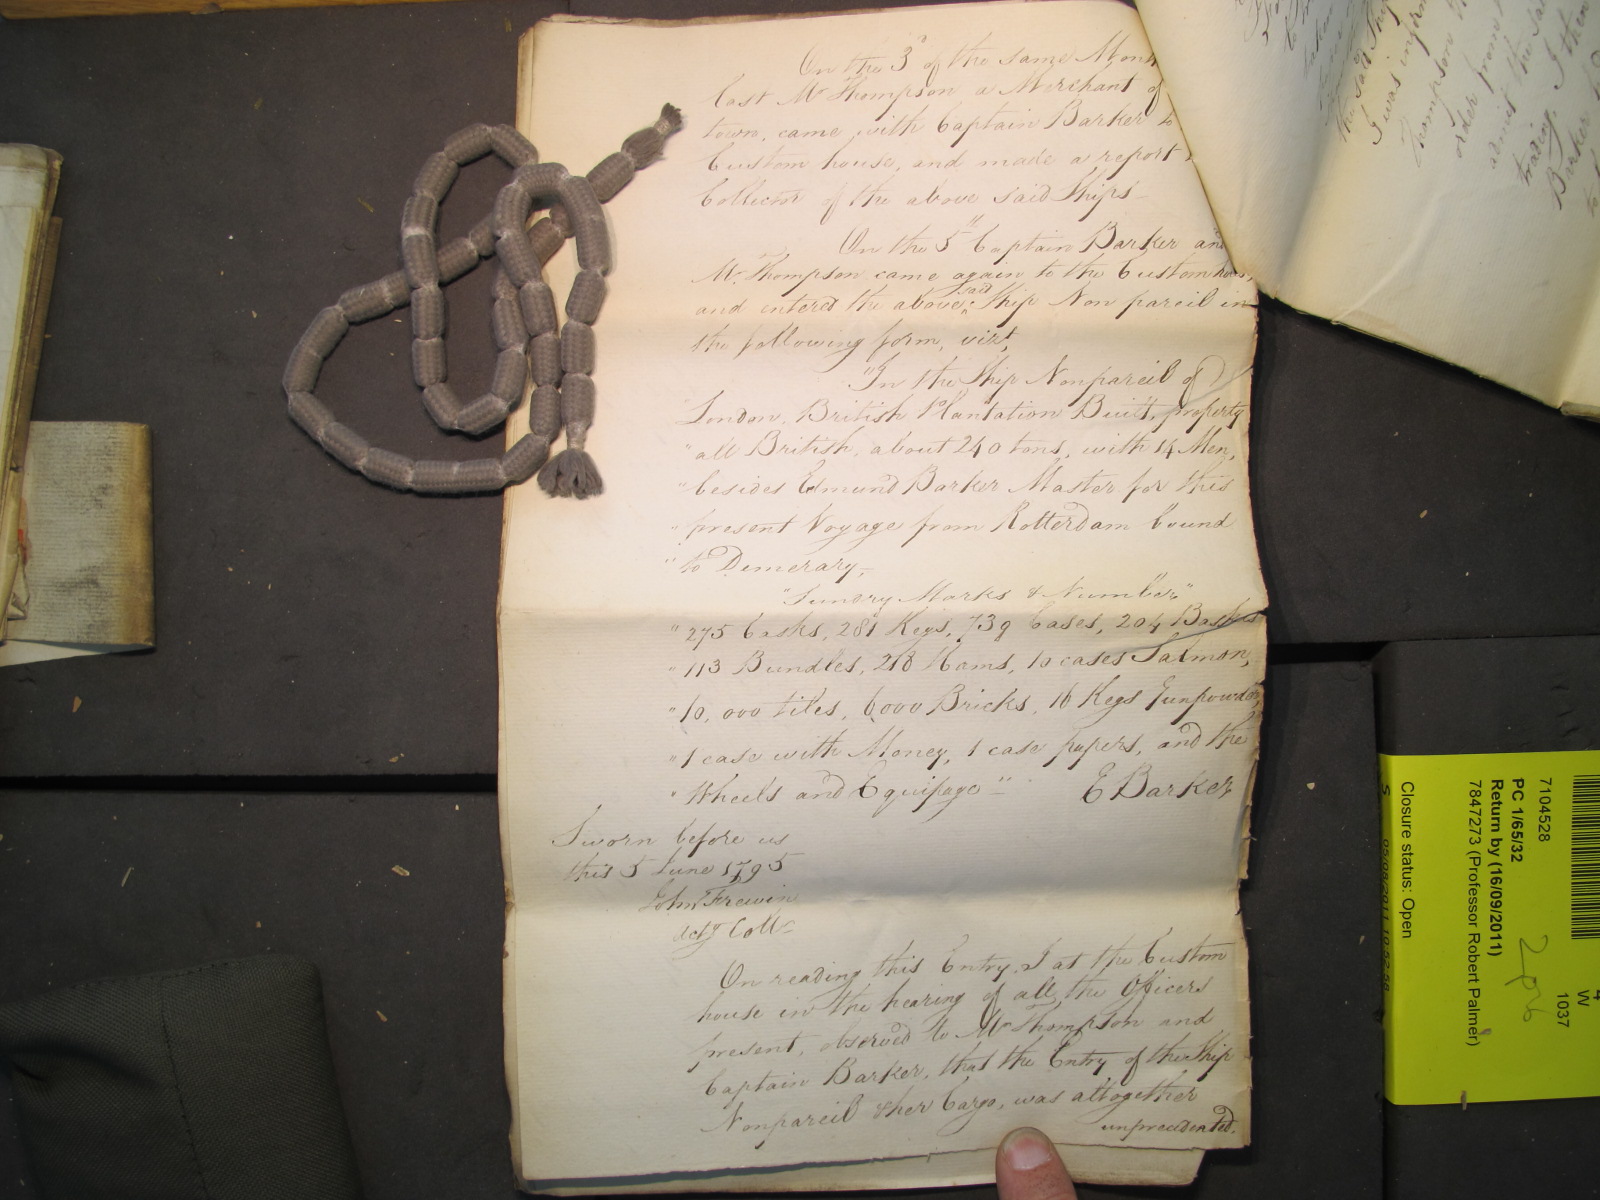 On the 3d of the same Month
last Mr Thompson a Merchant of
town, came with Captain Barker to
Custom house, and made a report
Collector of the above said Ships
On the 5" Captain Barker and
Mr Thompson came again to the Custom house,
and entered the above said Ship Non pareil in
the following form, vizt,
"In the Ship Nonpareil of
London, British Plantation Built, property
"all British, about 240 tons, with 14 Men,
"besides Edmund Barker Master for this
"present Voyage from Rotterdam bound
"to Demerary,
"Sundry Marks & Number"
"275 Casks, 281 Kegs, 739 Cases, 204 Baskets
"113 Bundles, 218 Hams, 10 cases Salmon,
"10,000 tiles, 6000 Bricks, 16 Kegs Gunpowder,
"1 case with Money, 1 case papers, and the
"Wheels and Equipage" E Barker,
Sworn before us
this 5 June 1795
John Frewin
actg Collr
On reading this Entry, I at the Custom
house in the hearing of all the Officers
present, observed to Mr Thompson and
Captain Barker, that the Entry of the Ship
Nonpareil & her Cargo, was altogether
unprecedented.
the said Ship
I was inform
Thompson
order from
admit the sa
trading. I then
Barker
7104528
PC 1/65/32
Return by (16/09/2011)
7847273 (Professor Robert Palmer)
Closure status: Open
4
W
1037
206
S 05/08/2011 10:52:58